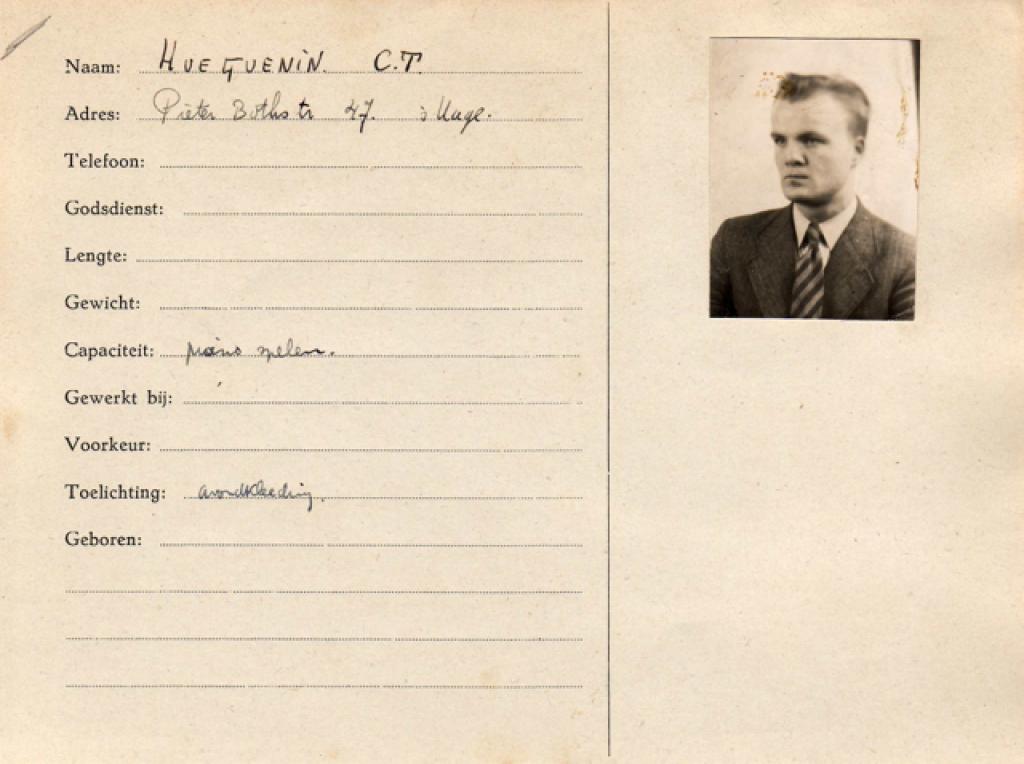 Naam: HUEGUENIN. C.T.
Adres: Pieter Bothstr 47. 's Hage.
Telefoon:
Godsdienst:
Lengte:
Gewicht:
Capaciteit: piano spelen.
Gewerkt bij:
Voorkeur:
Toelichting: avondkleeding.
Geboren: